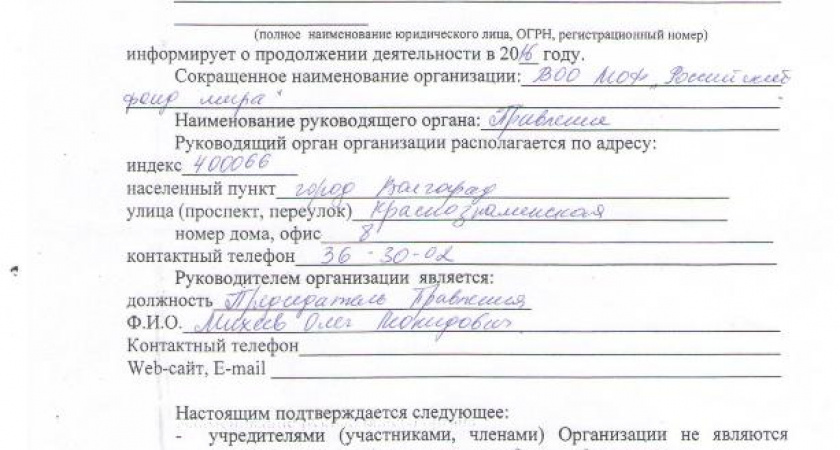 (полное наименование юридического лица, ОГРН, регистрационный номер)
информирует о продолжении деятельности в 2016 году.
Сокращенное наименование организации: ВОО МОФ „Российский
фонд мира“
Наименование руководящего органа: Правление
Руководящий орган организации располагается по адресу:
индекс 400066
населенный пункт город Волгоград
улица (проспект, переулок) Краснознаменская
номер дома, офис 8
контактный телефон 36-30-02
Руководителем организации является:
должность Председатель Правления
Ф.И.О. Михеев Олег Леонидович
Контактный телефон
Web-сайт, E-mail
Настоящим подтверждается следующее:
- учредителями (участниками, членами) Организации не являются